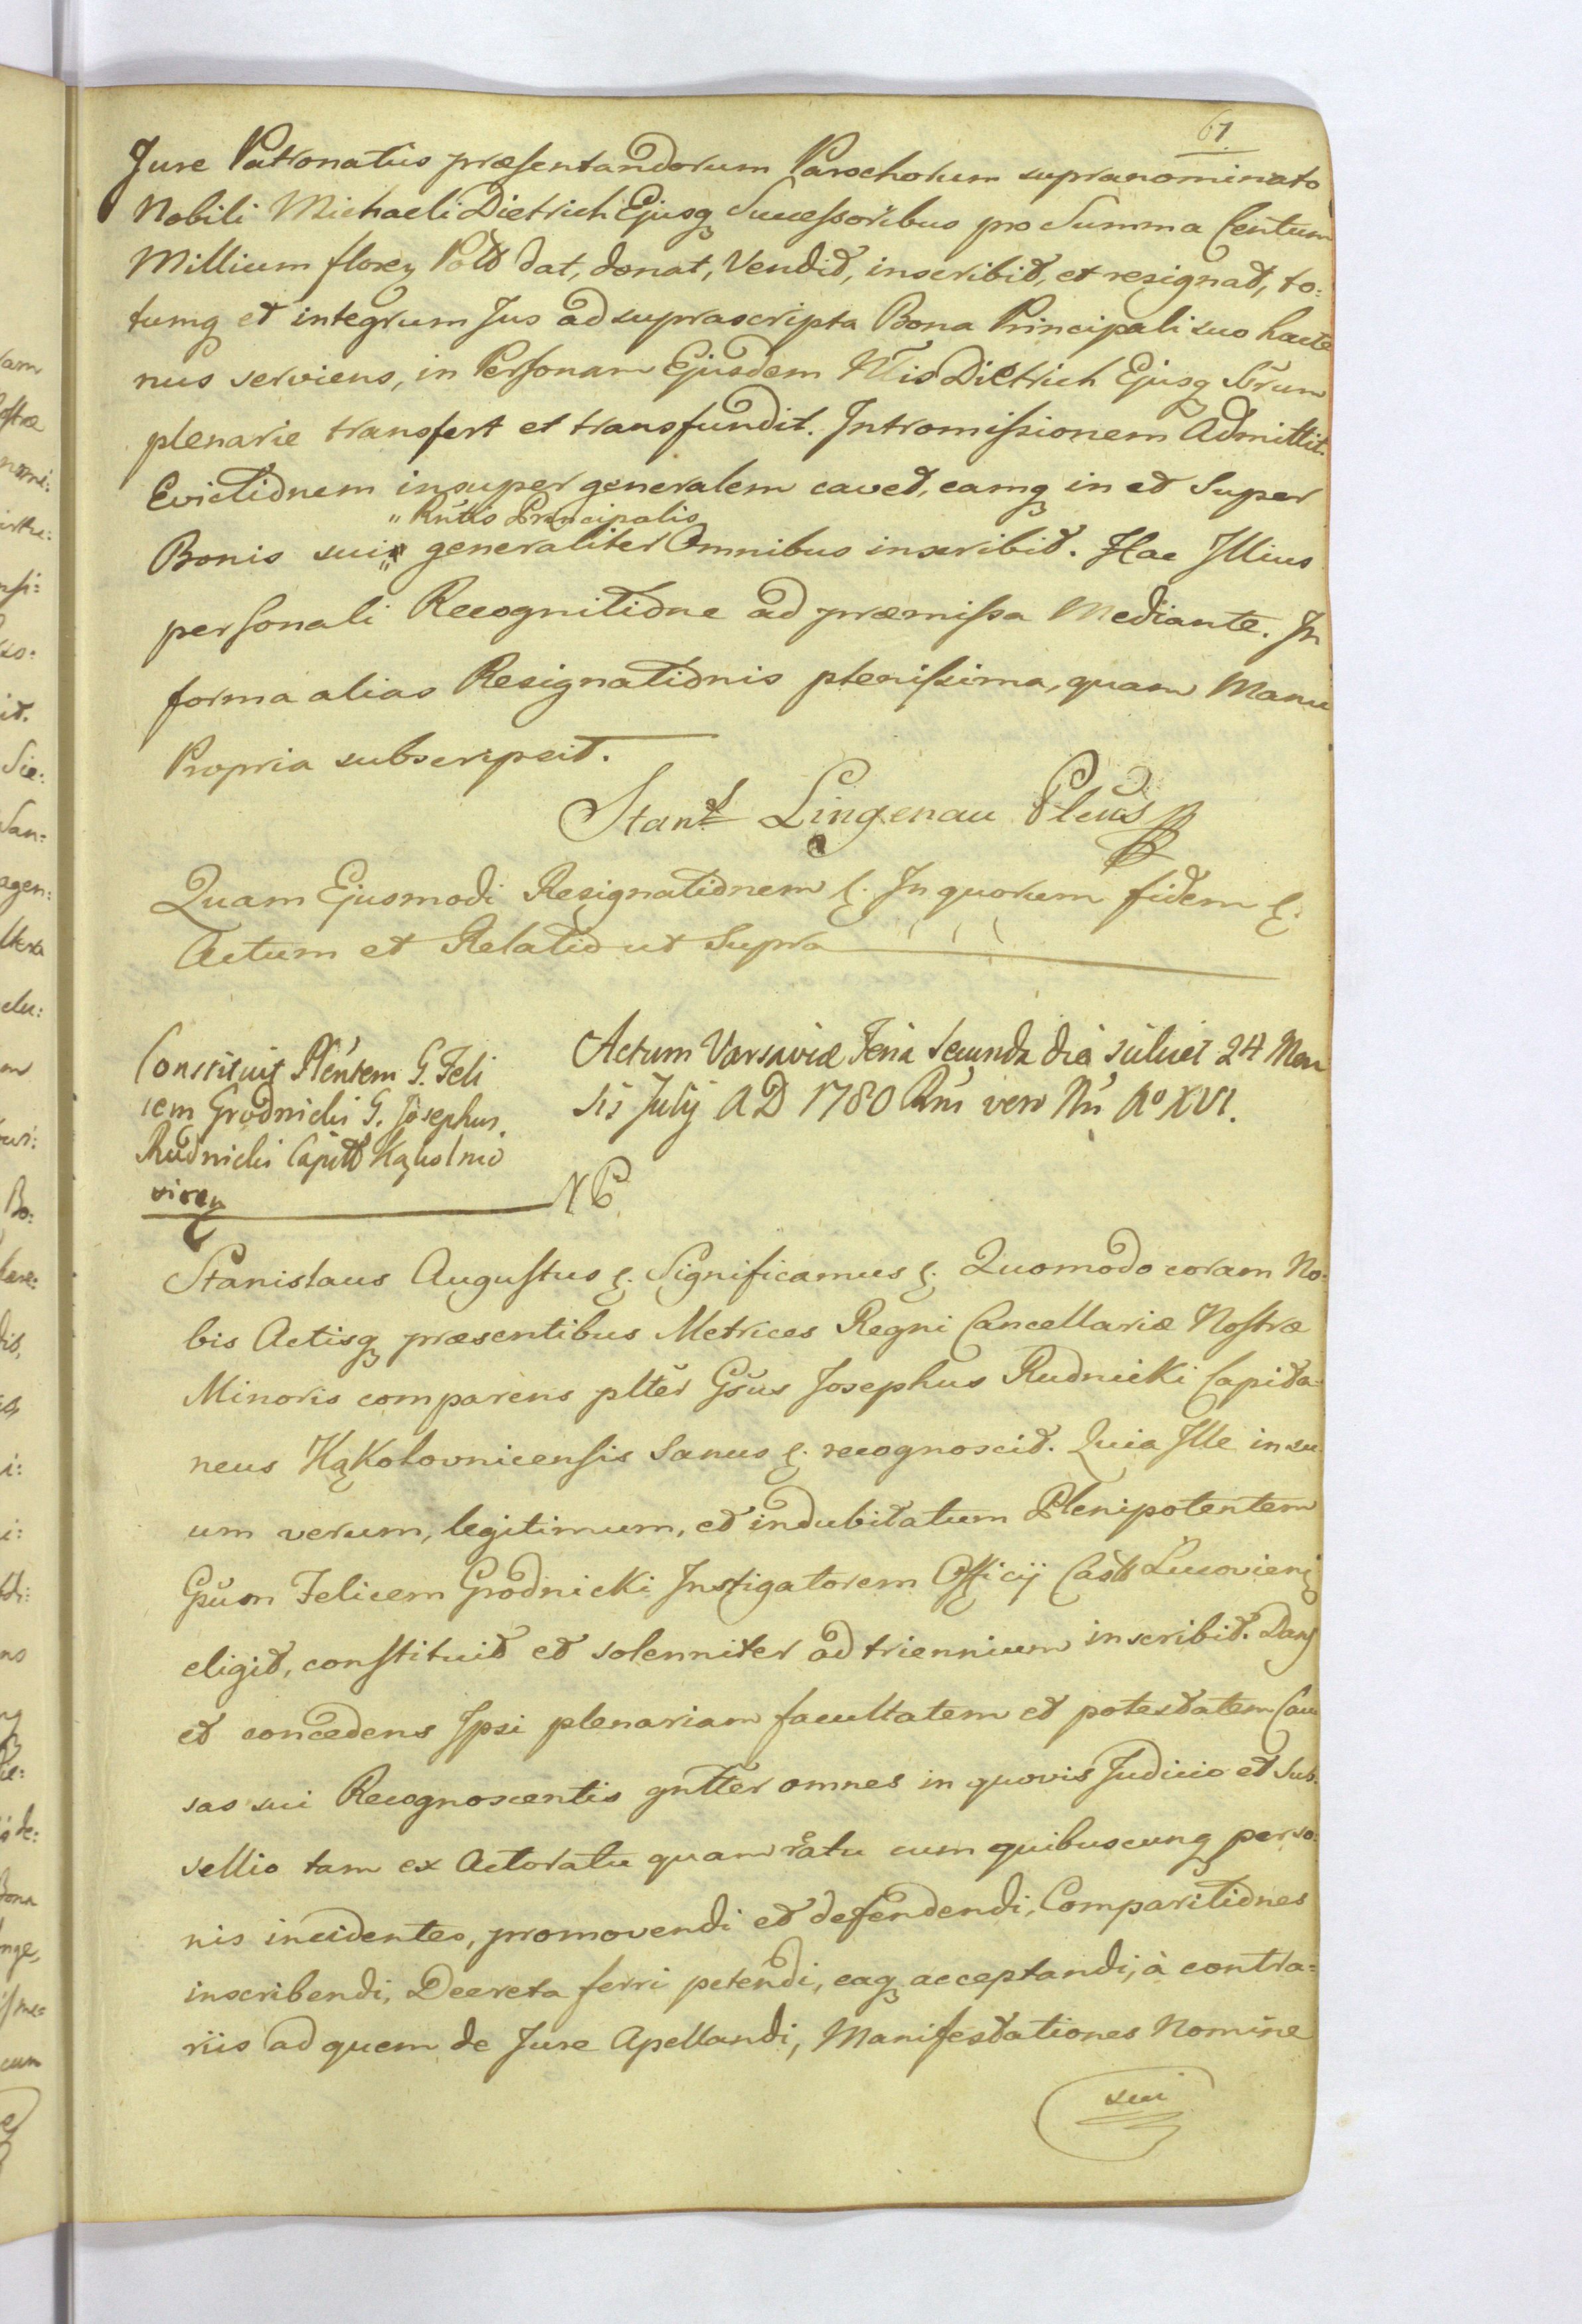 61.
Jure Patronatus præsentandorum Parochorum supranominato
Nobili Michaeli Dietrich Ejusq Successoribus pro Summa Centum
Millium floren Pold dat, donat, Vendit, inscribit, et resignat, to:
tumq et integrum Jus ad suprascripta Bona Principali suo hacte
nus serviens, in Personam Ejusdem Nlis Dietrich Ejusq Srum
plenarie transfert et transfundit. Intromissionem Admittit.
Evictionem insuper generalem cavet, eamq in et Super
" Rntis Principalis
Bonis sui " generaliter Omnibus inscribit. Hac Illius
personali Recognitione ad præmissa Mediante. In
forma alias Resignationis plenissima, quam Manu
Propria subscripsit.
Stans Lingenau Plens
Quam Ejusmodi Resignationem &. In quorum fidem &.
Actum et Relatio ut Supra
Constituit Plentem G. Feli
cem Grodnicki G. Josephus
Rudnicki Capitt Kąkolnio
vicen
Actum Varsaviæ Feria Secunda die scilicet 24 Men
sis July A D 1780 Rni vero Nri Ao XVI.
NB
Stanislaus Augustus &. Significamus &. Quomodo coram No:
bis Actisq præsentibus Metrices Regni Cancellariæ Nostræ
Minoris comparens pltèr Gsus Josephus Rudnicki Capita-
neus Kąkolovnicensis Sanus &. recognoscit. Quia Ille in su
um verum, legitimum, et indubitatum Plenipotentem
Gsum Felicem Grodnicki Instigatorem Officij Castr Lucovien
eligit, constituit et solenniter ad triennium inscribit. Dans
et concedens Ipsi plenariam facultatem et potestatem Cau
sas sui Recognoscentis gntter omnes in quovis Judicio et Sub:
sellio tam ex Actoratu quam ratu cum quibuscunq perso:
nis incidentes, promovendi et defendendi, Comparitiones
inscribendi, Decreta ferri petendi, eaq acceptandi, à contra=
riis ad quem de Jure Apellandi, Manifestationes Nomine
sui